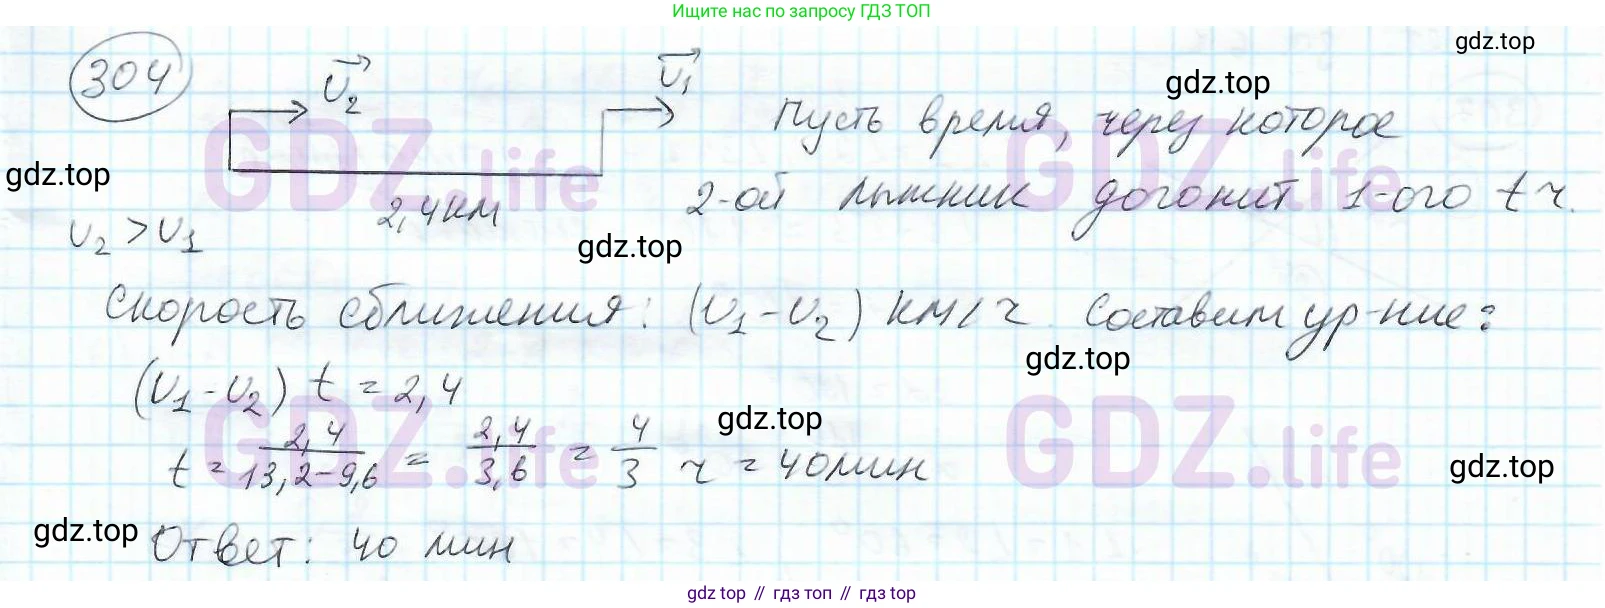 Ищите нас по запросу ГДЗ ТОП
gdz.top
304
υ₂
υ₁
gdz.top
Пусть время, через которое
gdz.top
GDZ.life
GDZ.life
2-ой лыжник догонит 1-ого t ч.
2,4км
υ₂ > υ₁
gdz.top
Скорость сближения: (υ₁-υ₂) км/ч. Составим ур-ние:
gdz.top
(υ₁-υ₂) t = 2,4
GDZ.life
gdz.top
GDZ.life
t = 2,4/13,2-9,6 = 2,4/3,6 = 4/3 ч = 40мин
gdz.top
gdz.top
Ответ: 40 мин
gdz top // гдз топ // gdz top